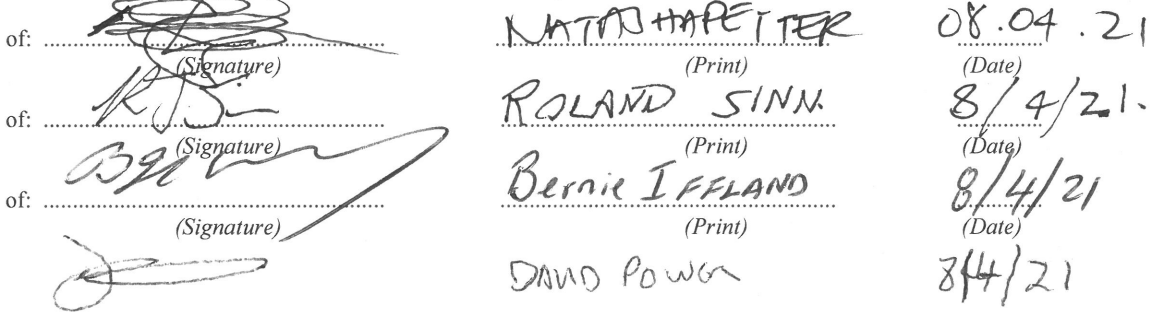 of: NATASHA PETTER 08.04.21
(Signature) (Print) (Date)
of: ROLAND SINN. 8/4/21.
(Signature) (Print) (Date)
of: Bernie IFFLAND 8/4/21
(Signature) (Print) (Date)
DAVID POWER 8/4/21